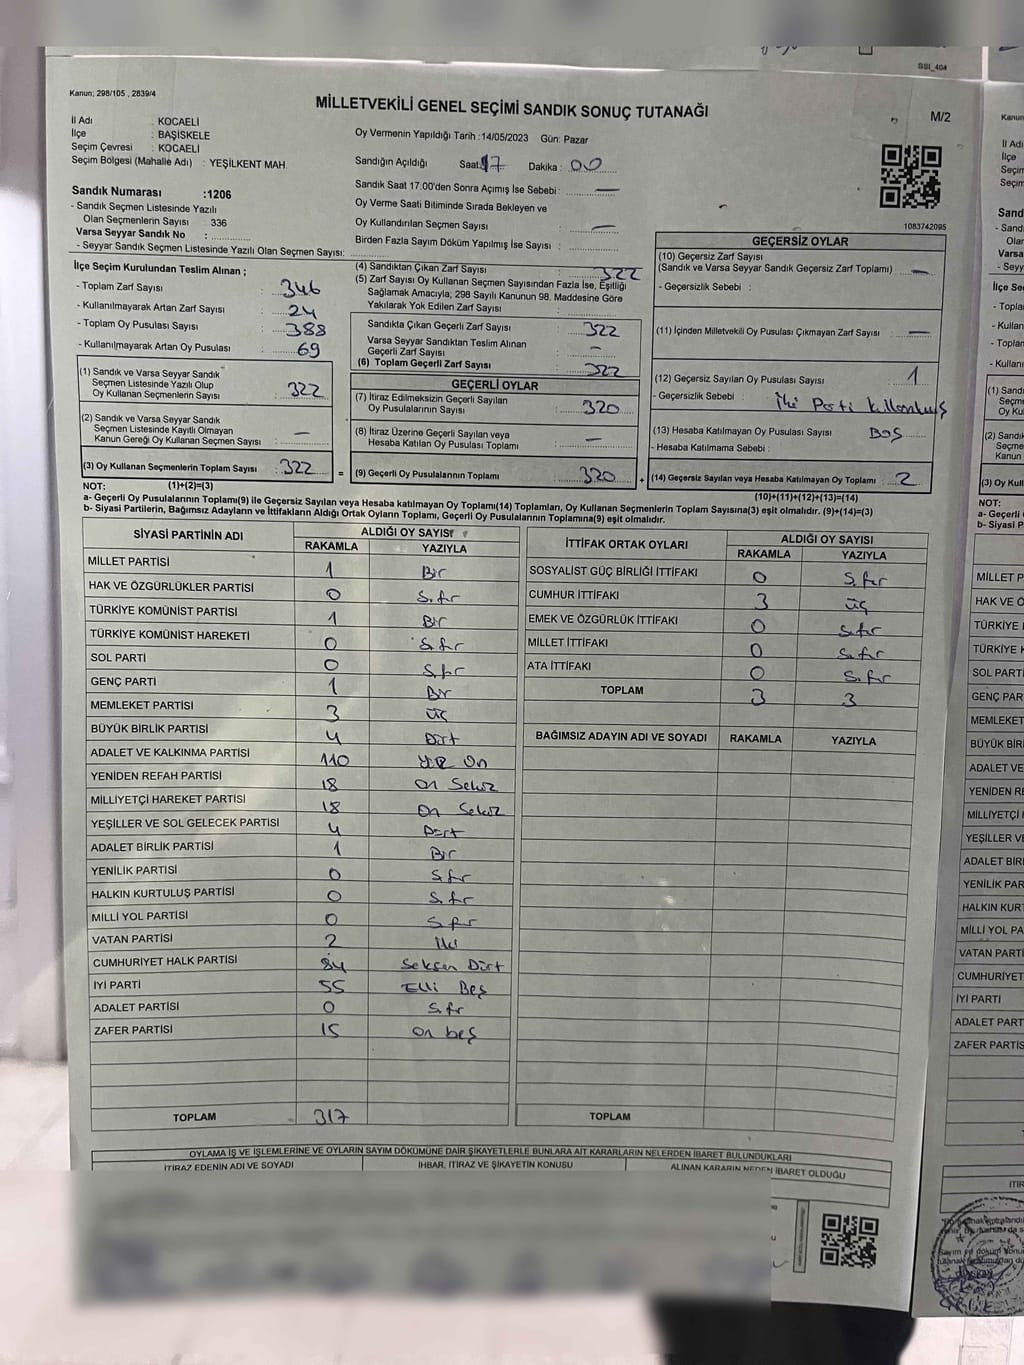 SSI_404
Kanun; 298/105 , 2839/4
MİLLETVEKİLİ GENEL SEÇİMİ SANDIK SONUÇ TUTANAĞI
M/2
İl Adı : KOCAELİ
İlçe : BAŞİSKELE
Seçim Çevresi : KOCAELİ
Seçim Bölgesi (Mahalle Adı) : YEŞİLKENT MAH.
Oy Vermenin Yapıldığı Tarih :14/05/2023 Gün: Pazar
Sandığın Açıldığı Saat:17 Dakika : 00
Sandık Saat 17:00'den Sonra Açımış İse Sebebi : —
Oy Verme Saati Bitiminde Sırada Bekleyen ve
Oy Kullandırılan Seçmen Sayısı : —
Birden Fazla Sayım Döküm Yapılmış İse Sayısı :
Sandık Numarası :1206
- Sandık Seçmen Listesinde Yazılı
Olan Seçmenlerin Sayısı : 336
Varsa Seyyar Sandık No :
- Seyyar Sandık Seçmen Listesinde Yazılı Olan Seçmen Sayısı:
1083742095
İlçe Seçim Kurulundan Teslim Alınan ;
- Toplam Zarf Sayısı : 346
- Kullanılmayarak Artan Zarf Sayısı : 24
- Toplam Oy Pusulası Sayısı : 388
- Kullanılmayarak Artan Oy Pusulası : 69
(1) Sandık ve Varsa Seyyar Sandık
Seçmen Listesinde Yazılı Olup
Oy Kullanan Seçmenlerin Sayısı : 322
(2) Sandık ve Varsa Seyyar Sandık
Seçmen Listesinde Kayıtlı Olmayan
Kanun Gereği Oy Kullanan Seçmen Sayısı : —
(3) Oy Kullanan Seçmenlerin Toplam Sayısı : 322
(4) Sandıktan Çıkan Zarf Sayısı : 322
(5) Zarf Sayısı Oy Kullanan Seçmen Sayısından Fazla İse, Eşitliği
Sağlamak Amacıyla, 298 Sayılı Kanunun 98. Maddesine Göre
Yakılarak Yok Edilen Zarf Sayısı :
Sandıkla Çıkan Geçerli Zarf Sayısı : 322
Varsa Seyyar Sandıktan Teslim Alınan
Geçerli Zarf Sayısı : —
(6) Toplam Geçerli Zarf Sayısı : 322
GEÇERLİ OYLAR
(7) İtiraz Edilmeksizin Geçerli Sayılan
Oy Pusulalarının Sayısı : 320
(8) İtiraz Üzerine Geçerli Sayılan veya
Hesaba Katılan Oy Pusulası Toplamı : —
= (9) Geçerli Oy Pusulalarının Toplamı : 320
GEÇERSİZ OYLAR
(10) Geçersiz Zarf Sayısı
(Sandık ve Varsa Seyyar Sandık Geçersiz Zarf Toplamı) : —
- Geçersizlik Sebebi :
(11) İçinden Milletvekili Oy Pusulası Çıkmayan Zarf Sayısı : —
(12) Geçersiz Sayılan Oy Pusulası Sayısı : 1
- Geçersizlik Sebebi : İki Parti Kullanılmış
(13) Hesaba Katılmayan Oy Pusulası Sayısı : BOŞ
- Hesaba Katılmama Sebebi :
+ (14) Geçersiz Sayılan veya Hesaba Katılmayan Oy Toplamı : 2
NOT: (1)+(2)=(3)
(10)+(11)+(12)+(13)=(14)
a- Geçerli Oy Pusulalarının Toplamı(9) ile Geçersiz Sayılan veya Hesaba katılmayan Oy Toplamı(14) Toplamları, Oy Kullanan Seçmenlerin Toplam Sayısına(3) eşit olmalıdır. (9)+(14)=(3)
b- Siyasi Partilerin, Bağımsız Adayların ve İttifakların Aldığı Ortak Oyların Toplamı, Geçerli Oy Pusulalarının Toplamına(9) eşit olmalıdır.
SİYASİ PARTİNİN ADI ALDIĞI OY SAYISI
RAKAMLA YAZIYLA
MİLLET PARTİSİ 1 Bir
HAK VE ÖZGÜRLÜKLER PARTİSİ 0 Sıfır
TÜRKİYE KOMÜNİST PARTİSİ 1 Bir
TÜRKİYE KOMÜNİST HAREKETİ 0 Sıfır
SOL PARTİ 0 Sıfır
GENÇ PARTİ 1 Bir
MEMLEKET PARTİSİ 3 üç
BÜYÜK BİRLİK PARTİSİ 4 Dört
ADALET VE KALKINMA PARTİSİ 110 yüz On
YENİDEN REFAH PARTİSİ 18 on Sekiz
MİLLİYETÇİ HAREKET PARTİSİ 18 on Sekiz
YEŞİLLER VE SOL GELECEK PARTİSİ 4 Dört
ADALET BİRLİK PARTİSİ 1 Bir
YENİLİK PARTİSİ 0 Sıfır
HALKIN KURTULUŞ PARTİSİ 0 Sıfır
MİLLİ YOL PARTİSİ 0 Sıfır
VATAN PARTİSİ 2 İki
CUMHURİYET HALK PARTİSİ 84 Seksen Dört
İYİ PARTİ 55 Elli Beş
ADALET PARTİSİ 0 Sıfır
ZAFER PARTİSİ 15 on beş
TOPLAM 317
İTTİFAK ORTAK OYLARI ALDIĞI OY SAYISI
RAKAMLA YAZIYLA
SOSYALİST GÜÇ BİRLİĞİ İTTİFAKI 0 Sıfır
CUMHUR İTTİFAKI 3 üç
EMEK VE ÖZGÜRLÜK İTTİFAKI 0 Sıfır
MİLLET İTTİFAKI 0 Sıfır
ATA İTTİFAKI 0 Sıfır
TOPLAM 3 3
BAĞIMSIZ ADAYIN ADI VE SOYADI RAKAMLA YAZIYLA
TOPLAM
OYLAMA İŞ VE İŞLEMLERİNE VE OYLARIN SAYIM DÖKÜMÜNE DAİR ŞİKAYETLERLE BUNLARA AİT KARARLARIN NELERDEN İBARET BULUNDUKLARI
İTİRAZ EDENİN ADI VE SOYADI İHBAR, İTİRAZ VE ŞİKAYETİN KONUSU ALINAN KARARIN NEDEN İBARET OLDUĞU